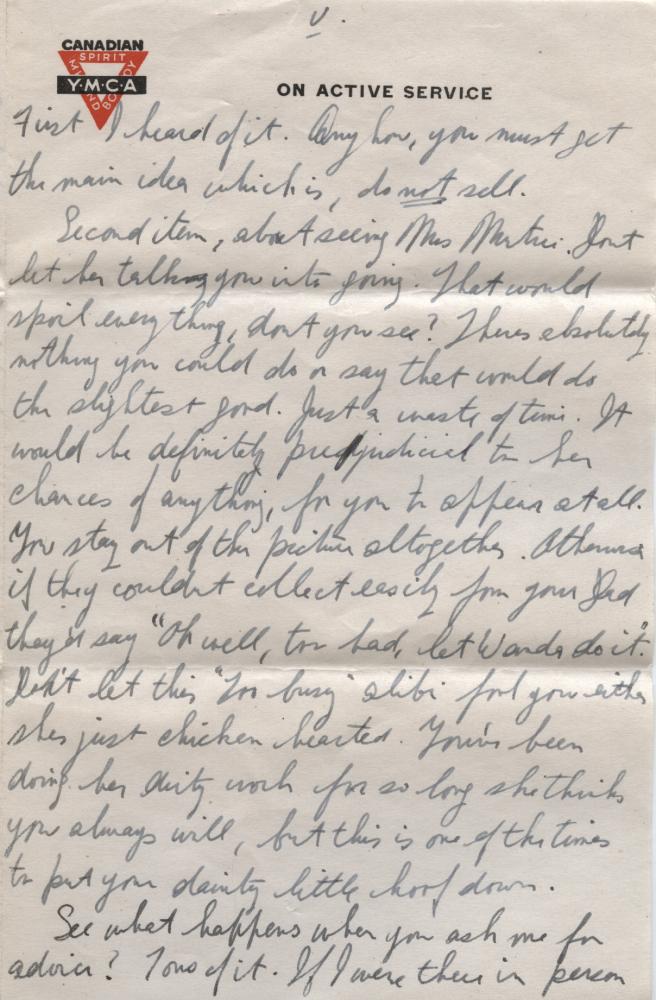 V.
CANADIAN
SPIRIT
MIND
BODY
Y·M·C·A
ON ACTIVE SERVICE
First I heard of it. Anyhow, you must get
the main idea which is, do not sell.
Second item, about seeing Mrs Dont
let her talk you into going. That would
spoil everything, dont you see? Theres absolutely
nothing you could do or say that would do
the slightest good. Just a waste of time. It
would be definitely prejudicial to her
chances of anything, for you to appear at all.
You stay out of the picture altogether. Otherwise
if they couldnt collect easily from your Dad
they'd say "Oh well, too bad, let Wanda do it".
Don't let this "Too busy" alibi fool you either
shes just chicken hearted. You've been
doing her dirty work for so long she thinks
you always will, but this is one of the times
to put your dainty little hoof down.
See what happens when you ask me for
advice? Tons of it. If I were there in person